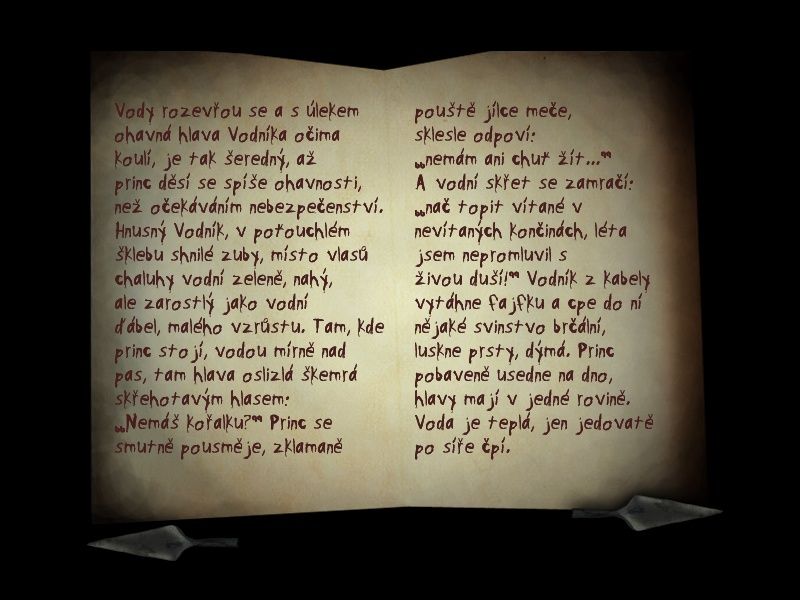 Vody rozevřou se a s úlekem
ohavná hlava Vodníka očima
koulí, je tak šeredný, až
princ děsí se spíše ohavnosti,
než očekáváním nebezpečenství.
Hnusný Vodník, v poťouchlém
šklebu shnilé zuby, místo vlasů
chaluhy vodní zeleně, nahý,
ale zarostlý jako vodní
ďábel, malého vzrůstu. Tam, kde
princ stojí, vodou mírně nad
pas, tam hlava oslizlá škemrá
skřehotavým hlasem:
„Nemáš kořalku?“ Princ se
smutně pousměje, zklamaně
pouště jílce meče,
sklesle odpoví:
„nemám ani chuť žít...“
A vodní skřet se zamračí:
„nač topit vítané v
nevítaných končinách, léta
jsem nepromluvil s
živou duší!“ Vodník z kabely
vytáhne fajfku a cpe do ní
nějaké svinstvo brčální,
luskne prsty, dýmá. Princ
pobaveně usedne na dno,
hlavy mají v jedné rovině.
Voda je teplá, jen jedovatě
po síře čpí.